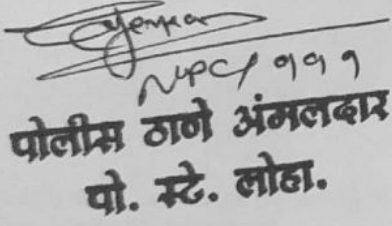 NPC/ १११
पोलीस ठाणे अंमलदार
पो. स्टे. लोहा.